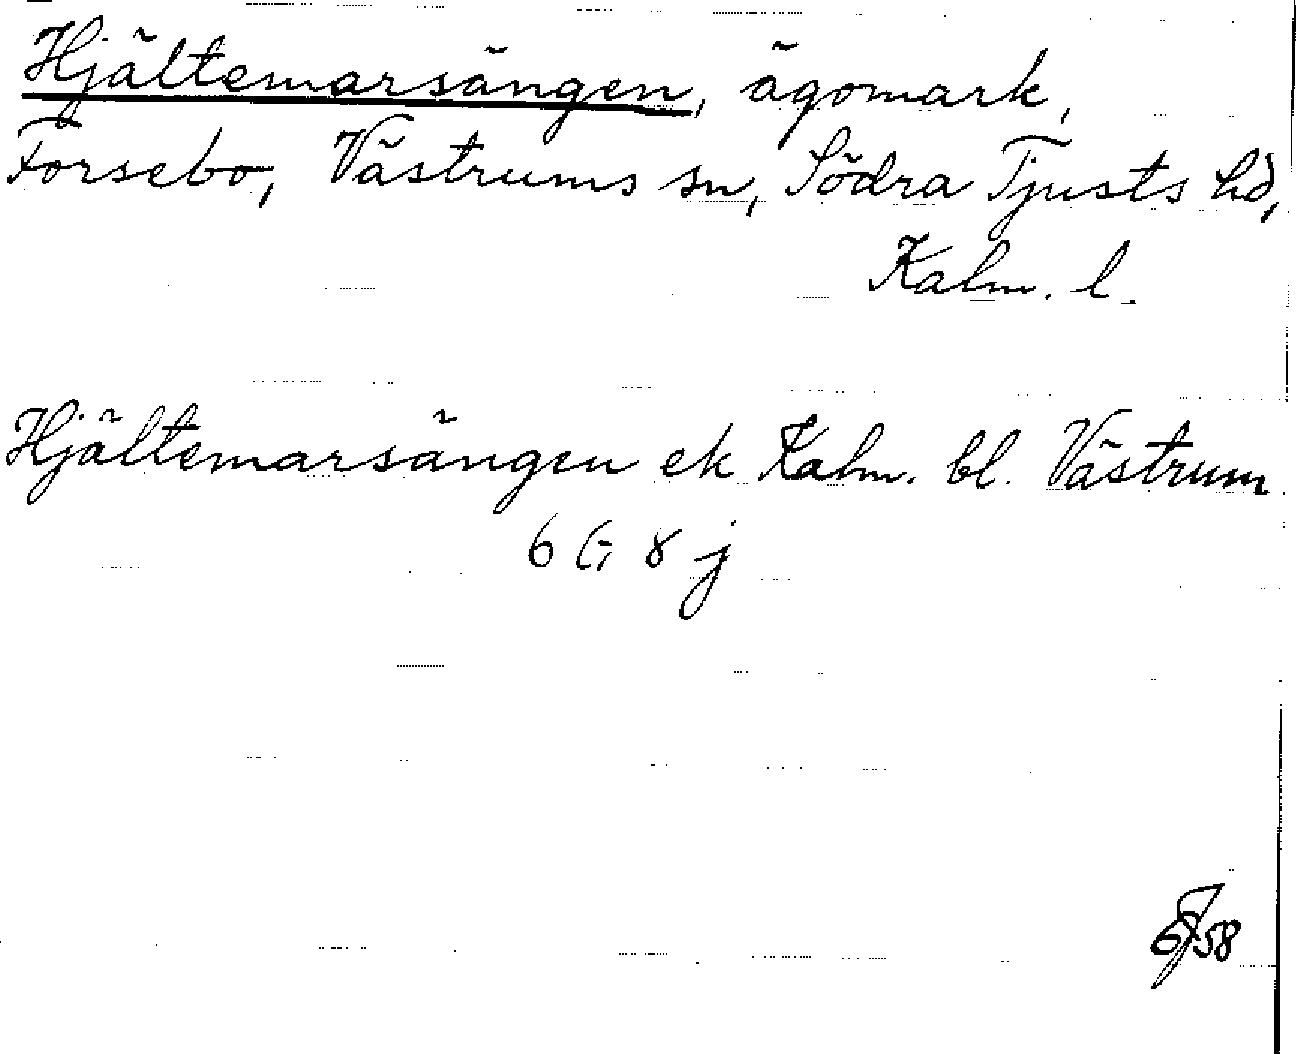 Hjältemarsängen, ägomark,
Forsebo, Västrums sn, Södra Tjusts hd,
Kalm. l.
Hjältemarsängen ek Kalm. bl. Västrum
6 G 8 j